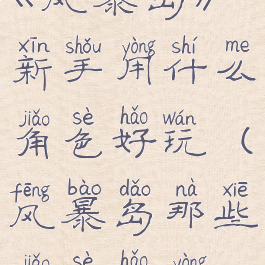 《风暴岛》
xīn shǒu yòng shí me
新手用什么
jiǎo sè hǎo wán
角色好玩（
fēng bào dǎo nà xiē
风暴岛那些
jiǎo sè hǎo yòng